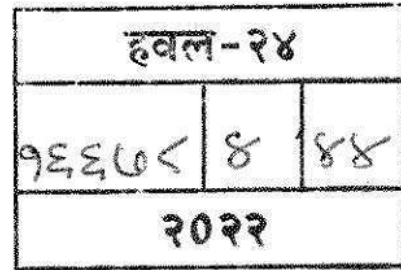 हवल-२४
१६६७८ ४ ४४
२०२२